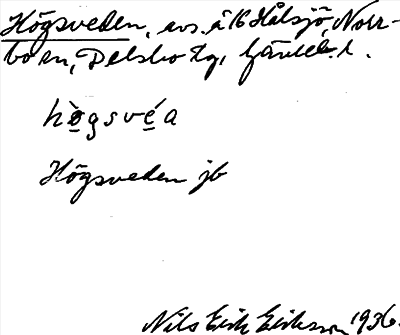 Högsveden, avs. å 16 Hålsjö, Norr-
bo sn, Delsbo tg, Gävleb. l.
hògsvéa
Högsveden jb
Nils Erik Eriksson 1936.